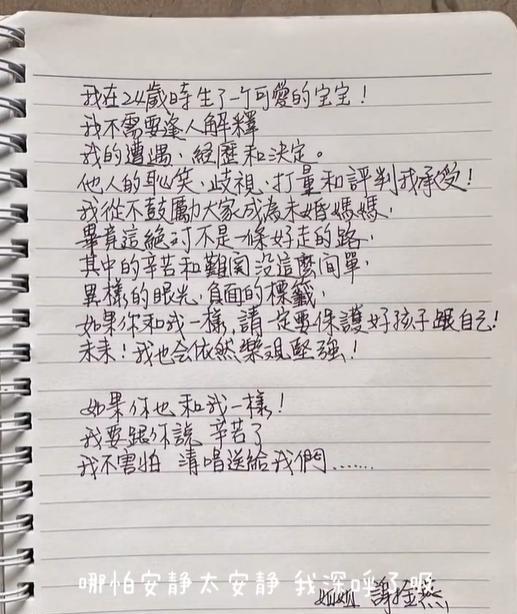 我在24歲時生了一个可愛的宝宝！
我不需要逢人解釋
我的遭遇、經歷和決定。
他人的恥笑、歧視、打量和評判我承受！
我從不鼓勵大家成為未婚媽媽，
畢竟這絕对不是一條好走的路，
其中的辛苦和難関没這麼简單，
異樣的眼光，負面的標籤，
如果你和我一樣，請一定要保護好孩子跟自己！
未来！我也会依然樂观堅強！
如果你也和我一樣！
我要跟你說 辛苦了
我不害怕 清唱送給我們.......
哪怕安静太安静 我深呼了啊